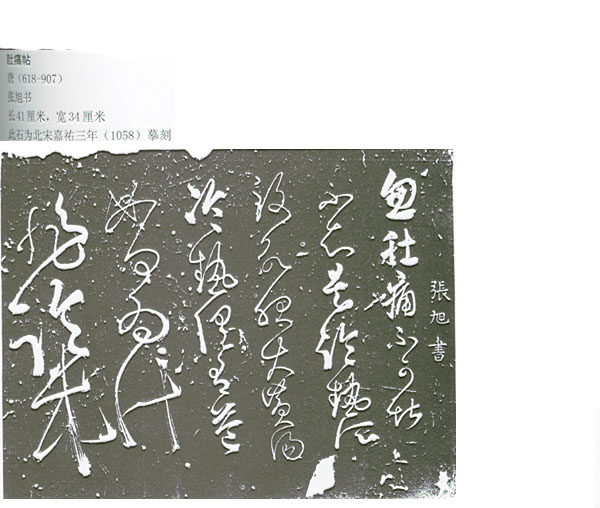 肚痛帖
唐（618-907）
张旭书
长41厘米，宽34厘米
此石为北宋嘉祐三年（1058）摹刻
張旭書
忽肚痛不可堪
不知是冷熱所
致欲服大黃湯
冷熱俱有益
如何為計
非臨床